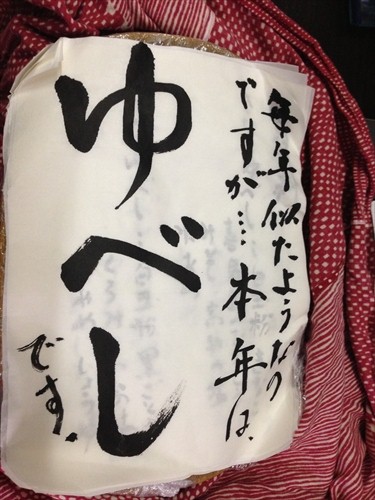 毎年似たようなの
ですが…本年は、
ゆべし
です.